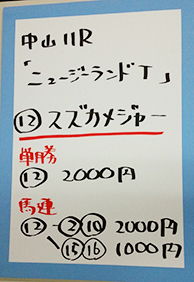 中山11R
「ニュージーランドT」
⑫スズカメジャー
単勝
⑫ 2000円
馬連
⑫-②⑩ 2000円
⑮⑯ 1000円